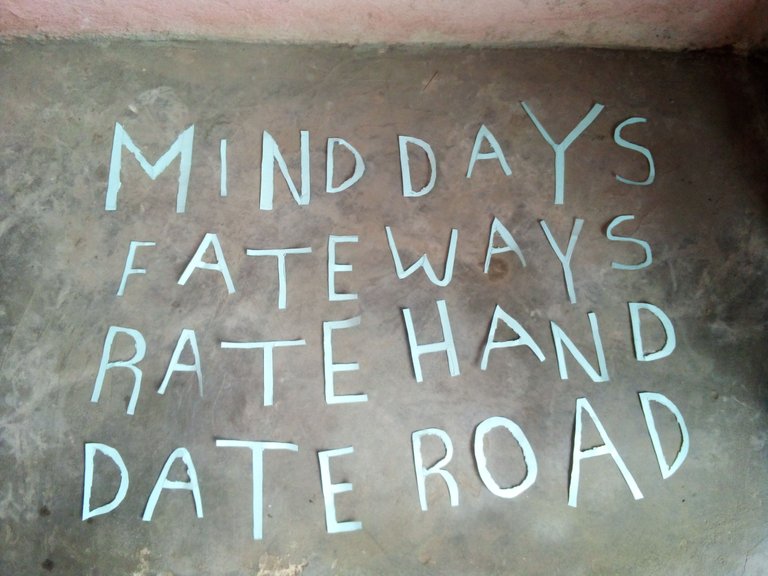 MIND DAYS
FATE WAYS
RATE HAND
DATE ROAD